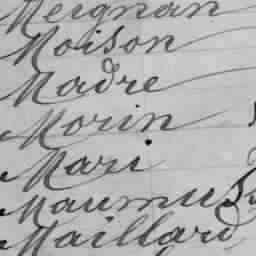 Meignan
Moison
Madre
Morin
Mari
Maumus
Maillard